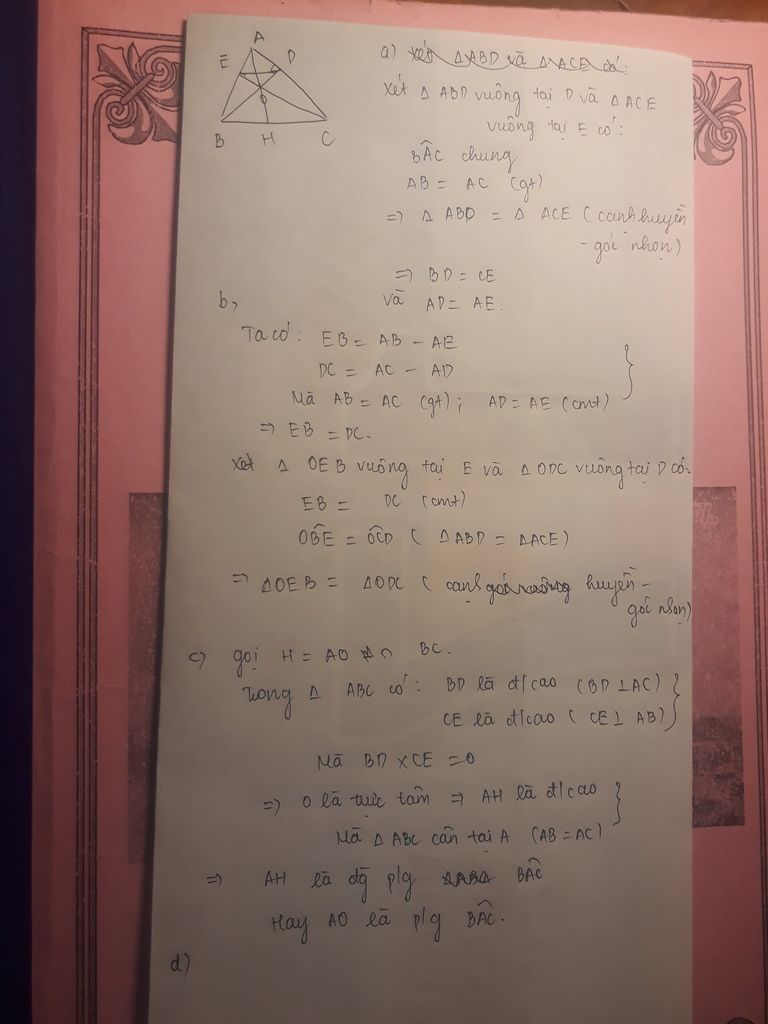 A
E
D
O
B
H
C
a) Xét Δ ABD và Δ ACE có:
Xét Δ ABD vuông tại D và Δ ACE
vuông tại E có:
BÂC chung
AB = AC (gt)
=> Δ ABD = Δ ACE (cạnh huyền
- góc nhọn)
=> BD = CE
và AD = AE.
b,
Ta có: EB = AB - AE
DC = AC - AD
Mà AB = AC (gt); AD = AE (cmt)
=> EB = DC.
Xét Δ OEB vuông tại E và Δ ODC vuông tại D có:
EB = DC (cmt)
OB̂E = OĈD ( ΔABD = ΔACE)
=> ΔOEB = ΔODC ( cạnh góc vuông huyền -
góc nhọn)
c) gọi H = AO ∩ BC.
Trong Δ ABC có: BD là đ/cao (BD ⊥ AC)
CE là đ/cao ( CE ⊥ AB)
Mà BD × CE = O
=> O là trực tâm => AH là đ/cao
Mà Δ ABC cân tại A (AB = AC)
=> AH là đg p/g BÂC
Hay AO là p/g BÂC.
d)